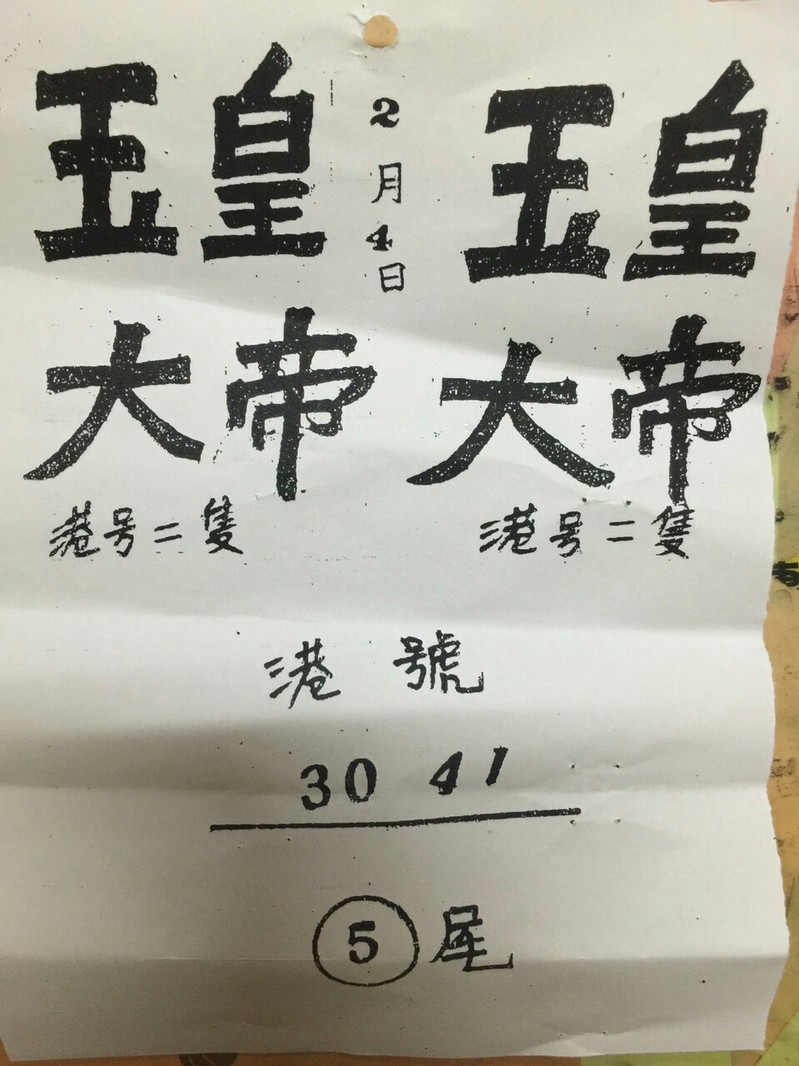 玉皇 2月4日 玉皇
大帝 大帝
港号二隻 港号二隻
港號
30 41
5尾